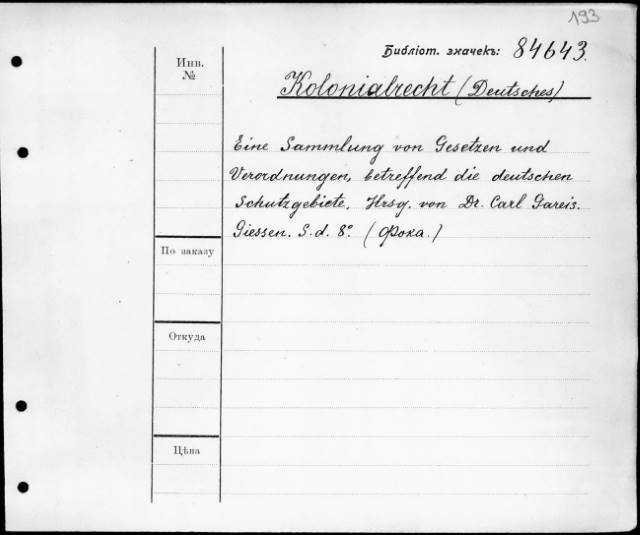 193
Библіот. значекъ: 84643.
Инв.
№
Kolonialrecht (Deutsches)
Eine Sammlung von Gesetzen und
Verordnungen, betreffend die deutschen
Schutzgebiete. Hrsg. von Dr. Carl Gareis.
Giessen. S. d. 8° (Фока.)
По заказу
Откуда
Цѣна